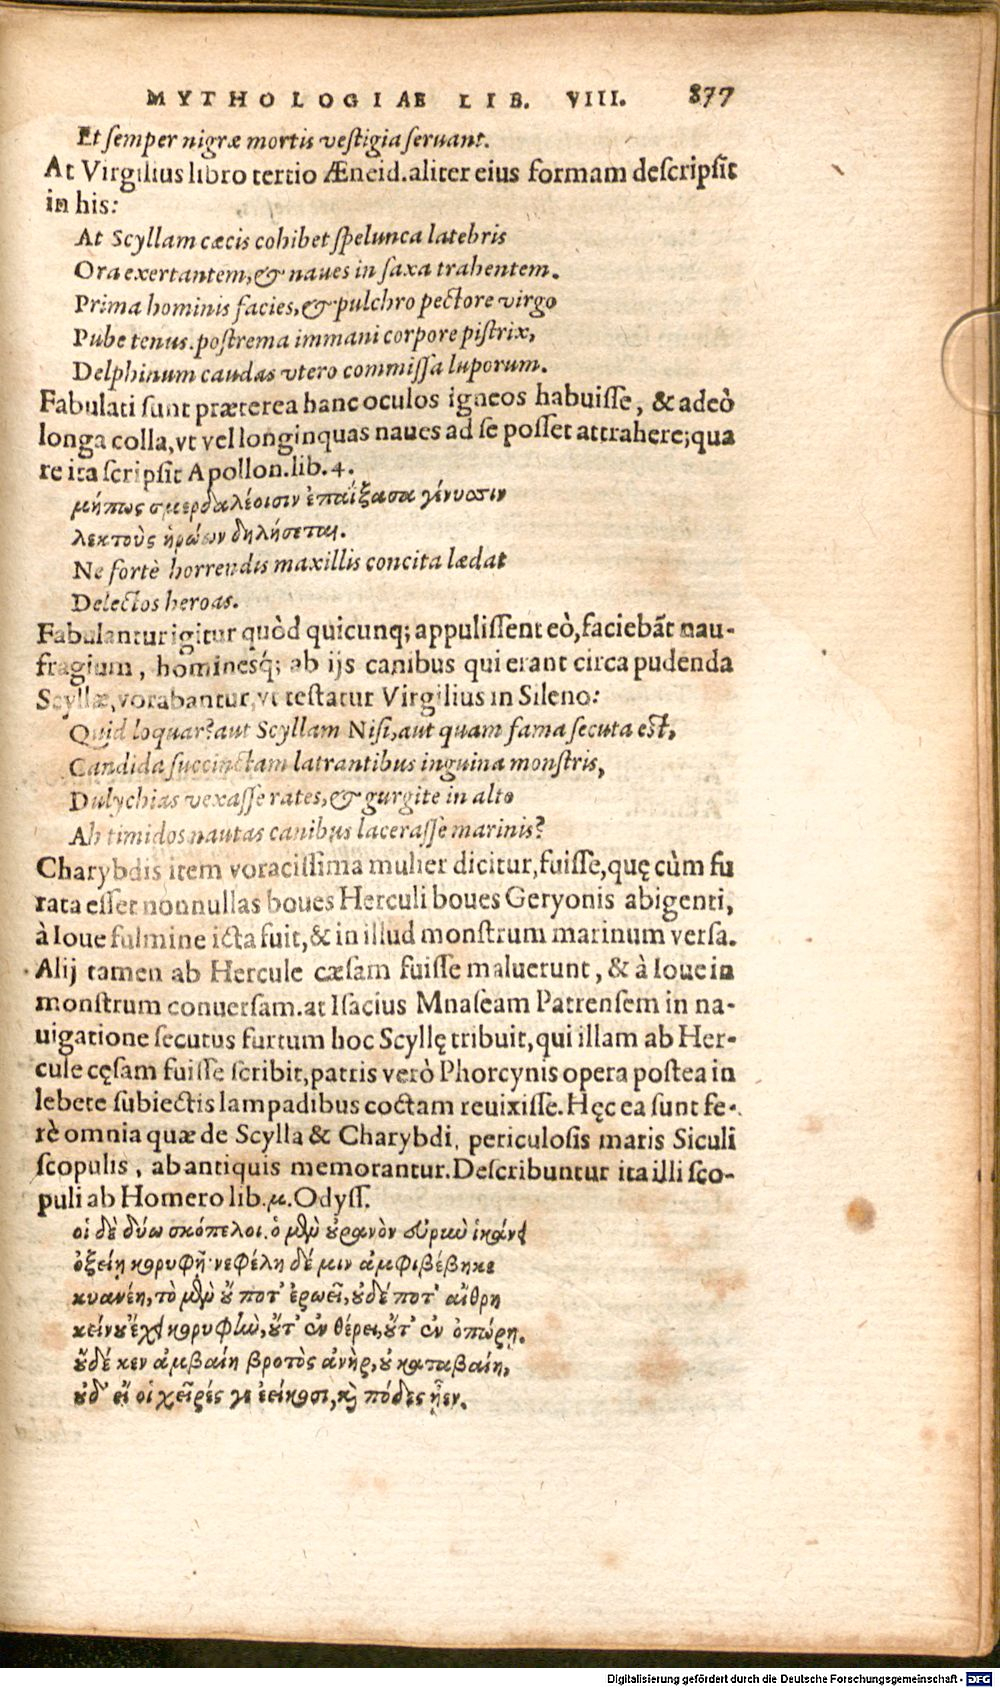 MYTHOLOGIAE LIB. VIII. 877
Et semper nigræ mortis vestigia seruant.
At Virgilius libro tertio Æneid. aliter eius formam descripsit
in his:
At Scyllam cæcis cohibet spelunca latebris
Ora exertantem, & naues in saxa trahentem.
Prima hominis facies, & pulchro pectore virgo
Pube tenus. postrema immani corpore pistrix,
Delphinum caudas vtero commissa luporum.
Fabulati sunt præterea hanc oculos igneos habuisse, & adeò
longa colla, vt vel longinquas naues ad se posset attrahere; qua
re ita scripsit Apollon. lib. 4.
μήπως σμερδαλέοισιν ἐπαΐξασα γένυσιν
λεκτοὺς ἡρώων δηλήσεται.
Ne fortè horrendis maxillis concita lædat
Delectos heroas.
Fabulantur igitur quòd quicunq; appulissent eò, faciebāt nau-
fragium, hominesq́; ab ijs canibus qui erant circa pudenda
Scyllæ, vorabantur, vt testatur Virgilius in Sileno:
Quid loquar? aut Scyllam Nisi, aut quam fama secuta est,
Candida succinctam latrantibus inguina monstris,
Dulychias vexasse rates, & gurgite in alto
Ah timidos nautas canibus lacerasse marinis?
Charybdis item voracissima mulier dicitur, fuisse, quę cùm fu
rata esset nonnullas boues Herculi boues Geryonis abigenti,
à Ioue fulmine icta fuit, & in illud monstrum marinum versa.
Alij tamen ab Hercule cæsam fuisse maluerunt, & à Ioue in
monstrum conuersam. at Isacius Mnaseam Patrensem in na-
uigatione secutus furtum hoc Scyllę tribuit, qui illam ab Her-
cule cęsam fuisse scribit, patris verò Phorcynis opera postea in
lebete subiectis lampadibus coctam reuixisse. Hęc ea sunt fe-
rè omnia quæ de Scylla & Charybdi, periculosis maris Siculi
scopulis, ab antiquis memorantur. Describuntur ita illi sco-
puli ab Homero lib. μ. Odyss.
οἱ δὲ δύω σκόπελοι. ὁ μὲν οὐρανὸν εὐρὺν ἱκάνει
ὀξείη κορυφῇ· νεφέλη δέ μιν ἀμφιβέβηκε
κυανέη, τὸ μὲν οὔ ποτ' ἐρωεῖ, οὐδέ ποτ' αἴθρη
κείνου ἔχει κορυφὴν, οὔτ' ἐν θέρει, οὔτ' ἐν ὀπώρῃ.
οὐδέ κεν ἀμβαίη βροτὸς ἀνὴρ, οὐ καταβαίη,
οὐδ' εἴ οἱ χεῖρές γε ἐείκοσι, καὶ πόδες ἦεν.
Digitalisierung gefördert durch die Deutsche Forschungsgemeinschaft - DFG